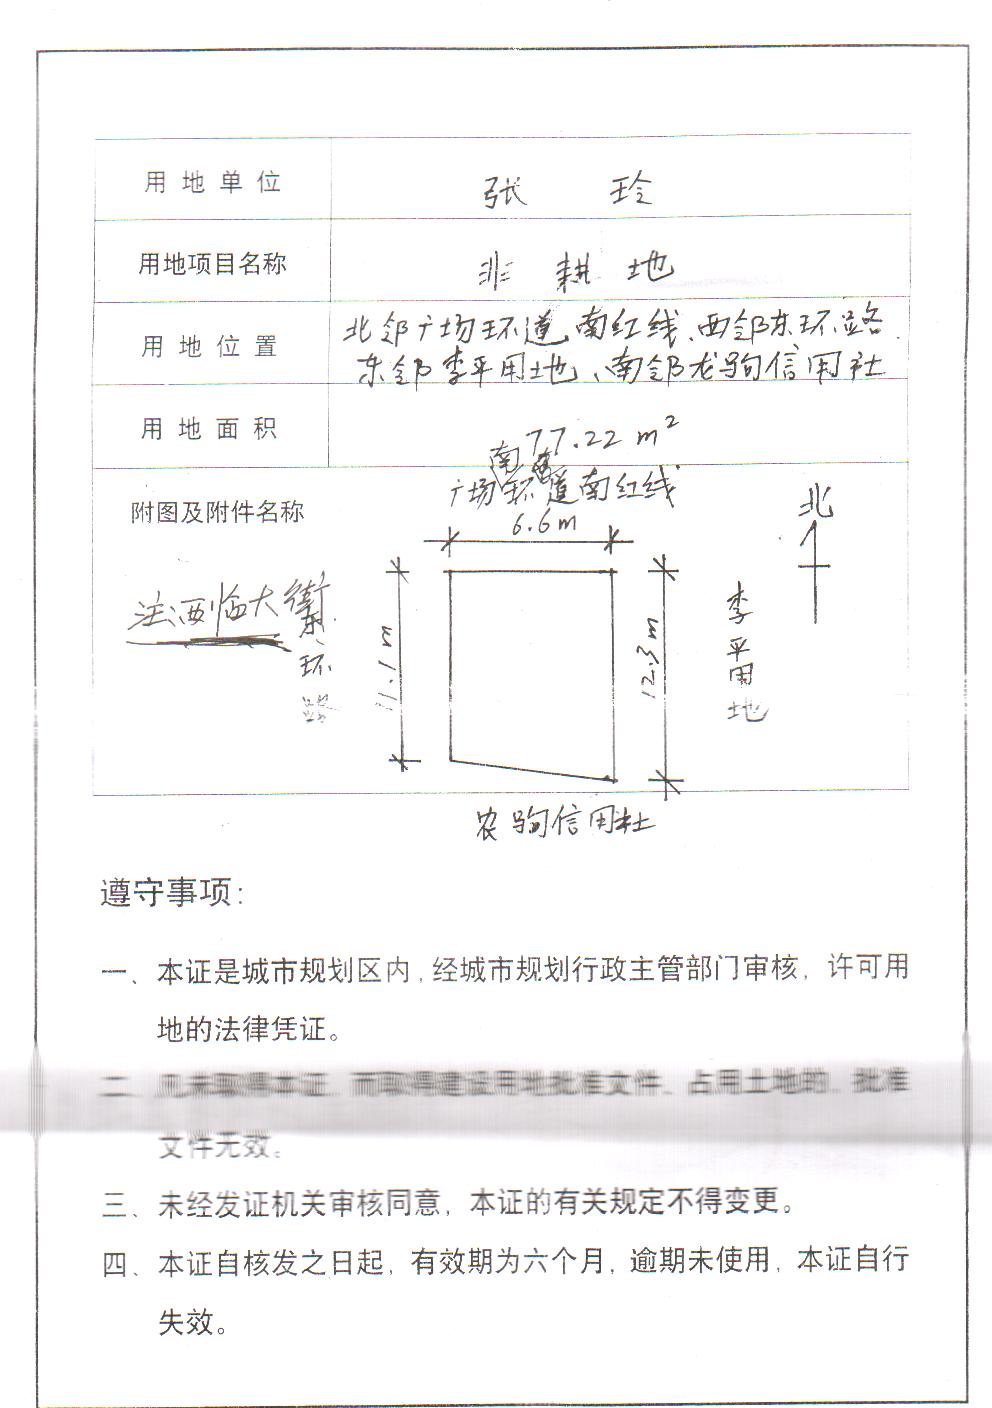 用地单位 张 玲
用地项目名称 非 耕 地
用地位置 北邻广场环道南红线、西邻东环路、
东邻李平用地、南邻龙驹信用社
用地面积 77.22 m²
南
广场环道南红线
附图及附件名称
6.6m
北
注:西临大街
东环路
11.1m
12.3m
李平用地
农驹信用社
遵守事项:
一、本证是城市规划区内,经城市规划行政主管部门审核,许可用
地的法律凭证。
二、凡未取得本证,而取得建设用地批准文件、占用土地的,批准
文件无效。
三、未经发证机关审核同意,本证的有关规定不得变更。
四、本证自核发之日起,有效期为六个月,逾期未使用,本证自行
失效。